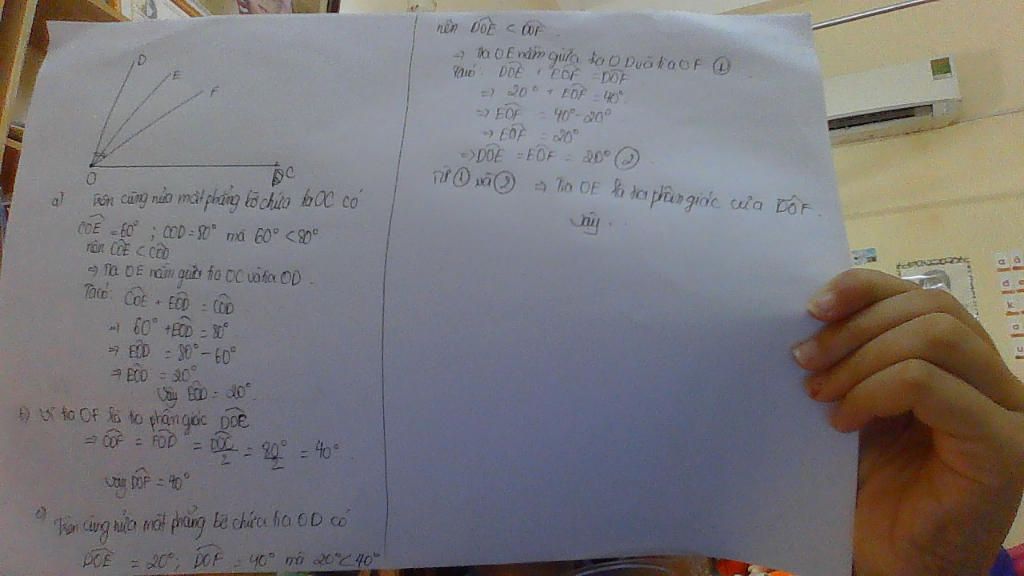 D
E
F
O
C
a) Trên cùng nửa mặt phẳng bờ chứa tia OC có
CÔE = 60° ; CÔD = 80° mà 60° < 80°
nên CÔE < CÔD
⇒ Tia OE nằm giữa tia OC và tia OD.
Ta có: CÔE + EÔD = CÔD
⇒ 60° + EÔD = 80°
⇒ EÔD = 80° - 60°
⇒ EÔD = 20°
Vậy EÔD = 20°.
b) Vì tia OF là tia phân giác DÔC
⇒ CÔF = FÔD = DÔC/2 = 80°/2 = 40°
Vậy DÔF = 40°
c) Trên cùng nửa mặt phẳng bờ chứa tia OD có
DÔE = 20° ; DÔF = 40° mà 20° < 40°
nên DÔE < DÔF.
⇒ Tia OE nằm giữa tia OD và tia OF ①
Ta có: DÔE + EÔF = DÔF
⇒ 20° + EÔF = 40°.
⇒ EÔF = 40° - 20°
⇒ EÔF = 20°
⇒ DÔE = EÔF = 20° ②.
Từ ① và ② ⇒ Tia OE là tia phân giác của DÔF.
Vậy .